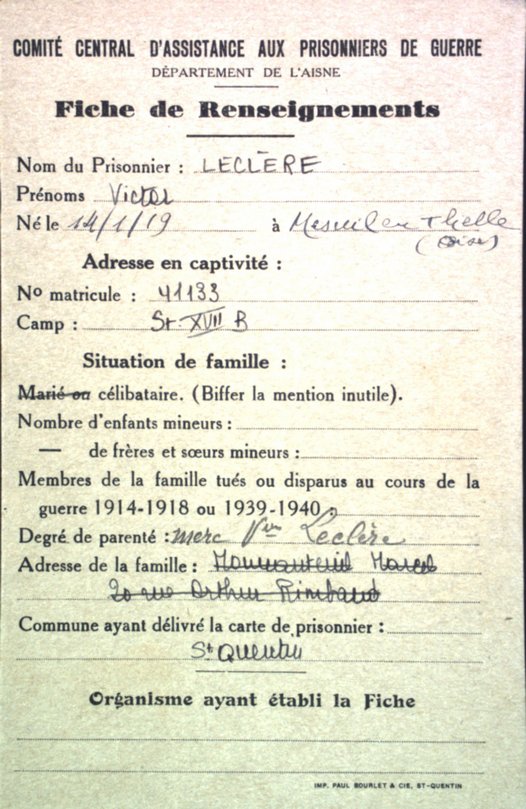 COMITÉ CENTRAL D'ASSISTANCE AUX PRISONNIERS DE GUERRE
DÉPARTEMENT DE L'AISNE
Fiche de Renseignements
Nom du Prisonnier : LECLÈRE
Prénoms Victor
Né le 14/1/19 à Mesnil en Thelle
(oise)
Adresse en captivité :
No matricule : 41133
Camp : St. XVII B
Situation de famille :
Marié ou célibataire. (Biffer la mention inutile).
Nombre d'enfants mineurs :
— de frères et sœurs mineurs :
Membres de la famille tués ou disparus au cours de la
guerre 1914-1918 ou 1939-1940 :
Degré de parenté : mere Vve Leclère
Adresse de la famille : Marcel
20 rue Arthur Rimbaud
Commune ayant délivré la carte de prisonnier :
St Quentin
Organisme ayant établi la Fiche
IMP. PAUL BOURLET & CIE, ST-QUENTIN